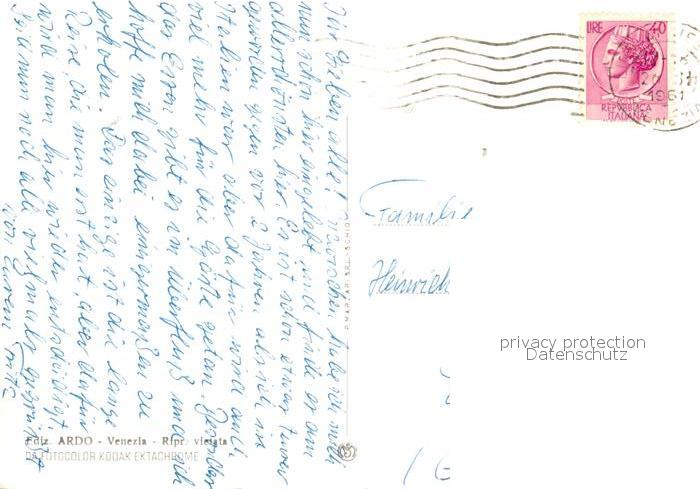 Ihr Lieben alle! Inzwischen habe ich mich
nun schon hier eingelebt und finde es am
allerschönsten hier. Es ist schon etwas teurer
geworden gegen vor 2 Jahren als ich in
Italien war aber dafür wird auch
viel mehr für die Gäste getan. Besonders
das Essen gibt es im Überfluß und ich
hoffe mich dabei einigermaßen zu
erholen. Das einzige ist die lange
Reise, die man erst hat, aber dafür
wird man hier wieder entschädigt.
Seid nun noch alle vielmals gegrüßt
von Eurem Fritz
Ediz. ARDO - Venezia - Ripr. vietata
DA FOTOCOLOR KODAK EKTACHROME
LIRE 40
REPVBBLICA
ITALIANA
1961
Familie
Heinrich
privacy protection
Datenschutz